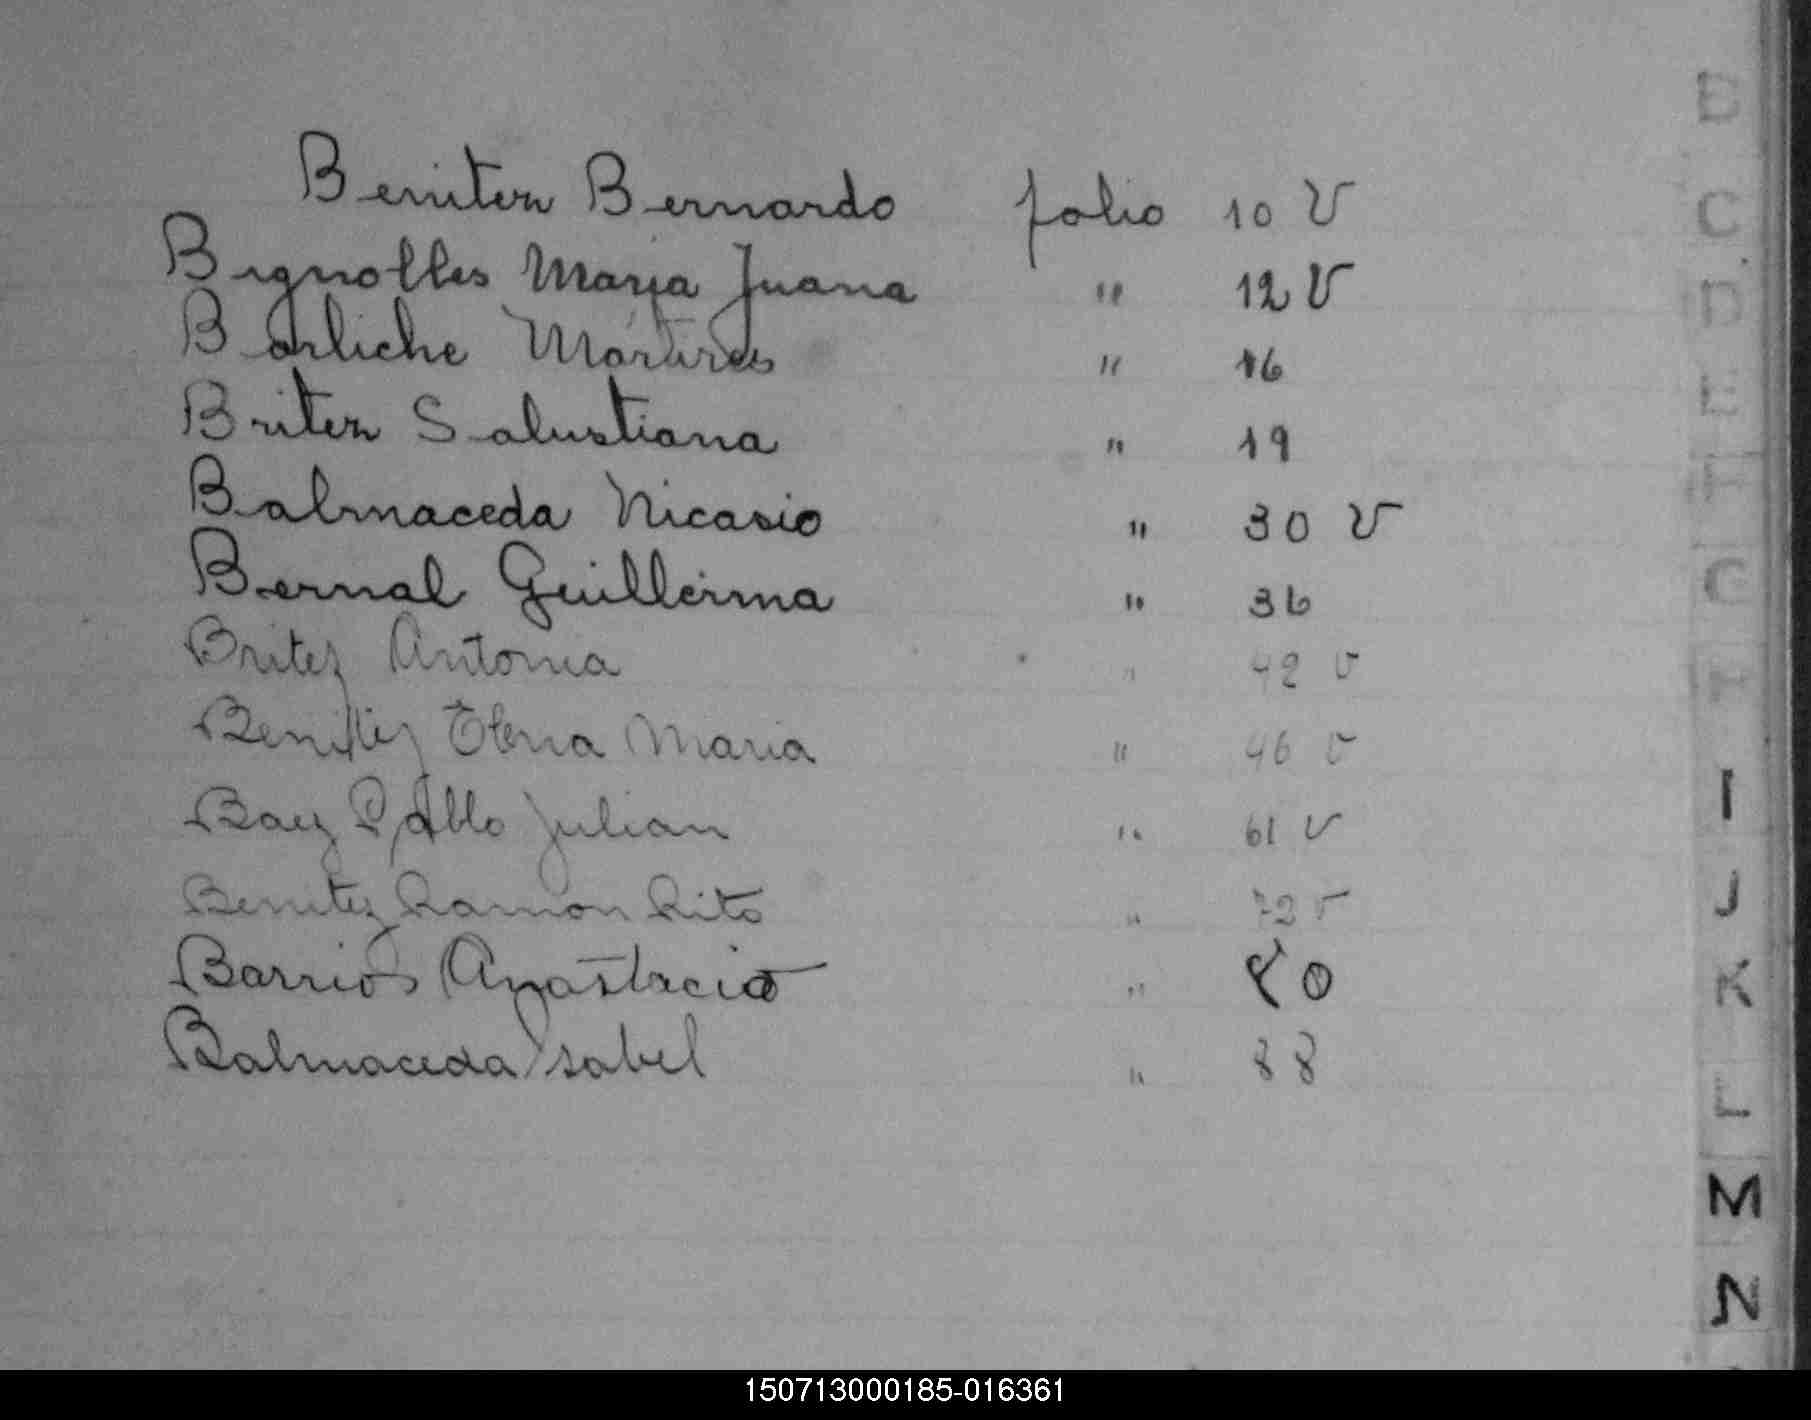 B
Benitez Bernardo folio 10 V
C
Bignolles Maria Juana " 12 V
D
Barliche Martires " 16
E
Britez Salustiana " 19
F
Balmaceda Nicasio " 30 V
Bernal Guillerma " 36
G
Britez Antonia " 42 v
H
Benitez Elena Maria " 46 v
I
Baez Pablo Julian " 61 v
J
Benitez Ramon Rito " 72 v
K
Barrios Anastacio " 80
Balmaceda Isabel " 88
L
M
N
150713000185-016361